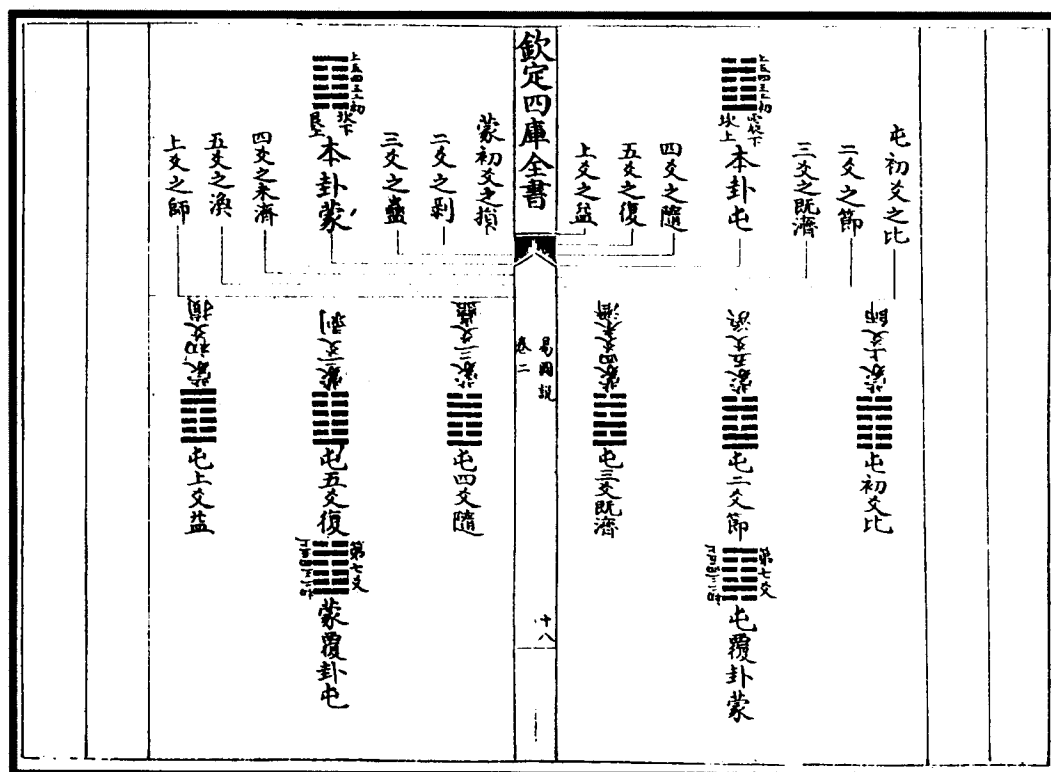 屯初爻之比
二爻之節
三爻之既濟
上五四三二初
震下
坎上
本卦屯
四爻之隨
五爻之復
上爻之益
蒙上爻師
屯初爻比
蒙五爻渙
屯二爻節
第七爻
上五四三二初
屯覆卦蒙
蒙四爻未濟
屯三爻既濟
欽定四庫全書
易圖說
卷二
十八
蒙初爻之損
二爻之剥
三爻之蠱
上五四三二初
坎下
艮上
本卦蒙
四爻之未濟
五爻之渙
上爻之師
蒙三爻蠱
屯四爻隨
蒙二爻剥
屯五爻復
第七爻
上五四三二初
蒙覆卦屯
蒙初爻損
屯上爻益